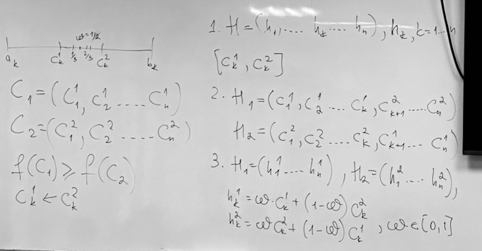 ω=1/2
a_k C_k^1 1/3 2/3 C_k^2 b_k
C_1=(C_1^1, C_2^1 ..... C_n^1)
C_2=(C_1^2, C_2^2 ..... C_n^2)
f(C_1) ⩾ f(C_2)
C_k^1 ← C_k^2
1. H = (h_1, .... h_k .... h_n), h_k, k=1÷n
[C_k^1, C_k^2]
2. H_1=(C_1^1, C_2^1 ... C_k^1, C_{k+1}^2 ..... C_n^2)
H_2=(C_1^2, C_2^2 ... C_k^2, C_{k+1}^1 ... C_n^1)
3. H_1=(h_1^1 ..... h_n^1), H_2=(h_1^2 ... h_n^2),
h_k^1 = ω·C_k^1 + (1-ω) C_k^2
h_k^2 = ωC_k^2 + (1-ω) C_k^1, ω∈[0,1]